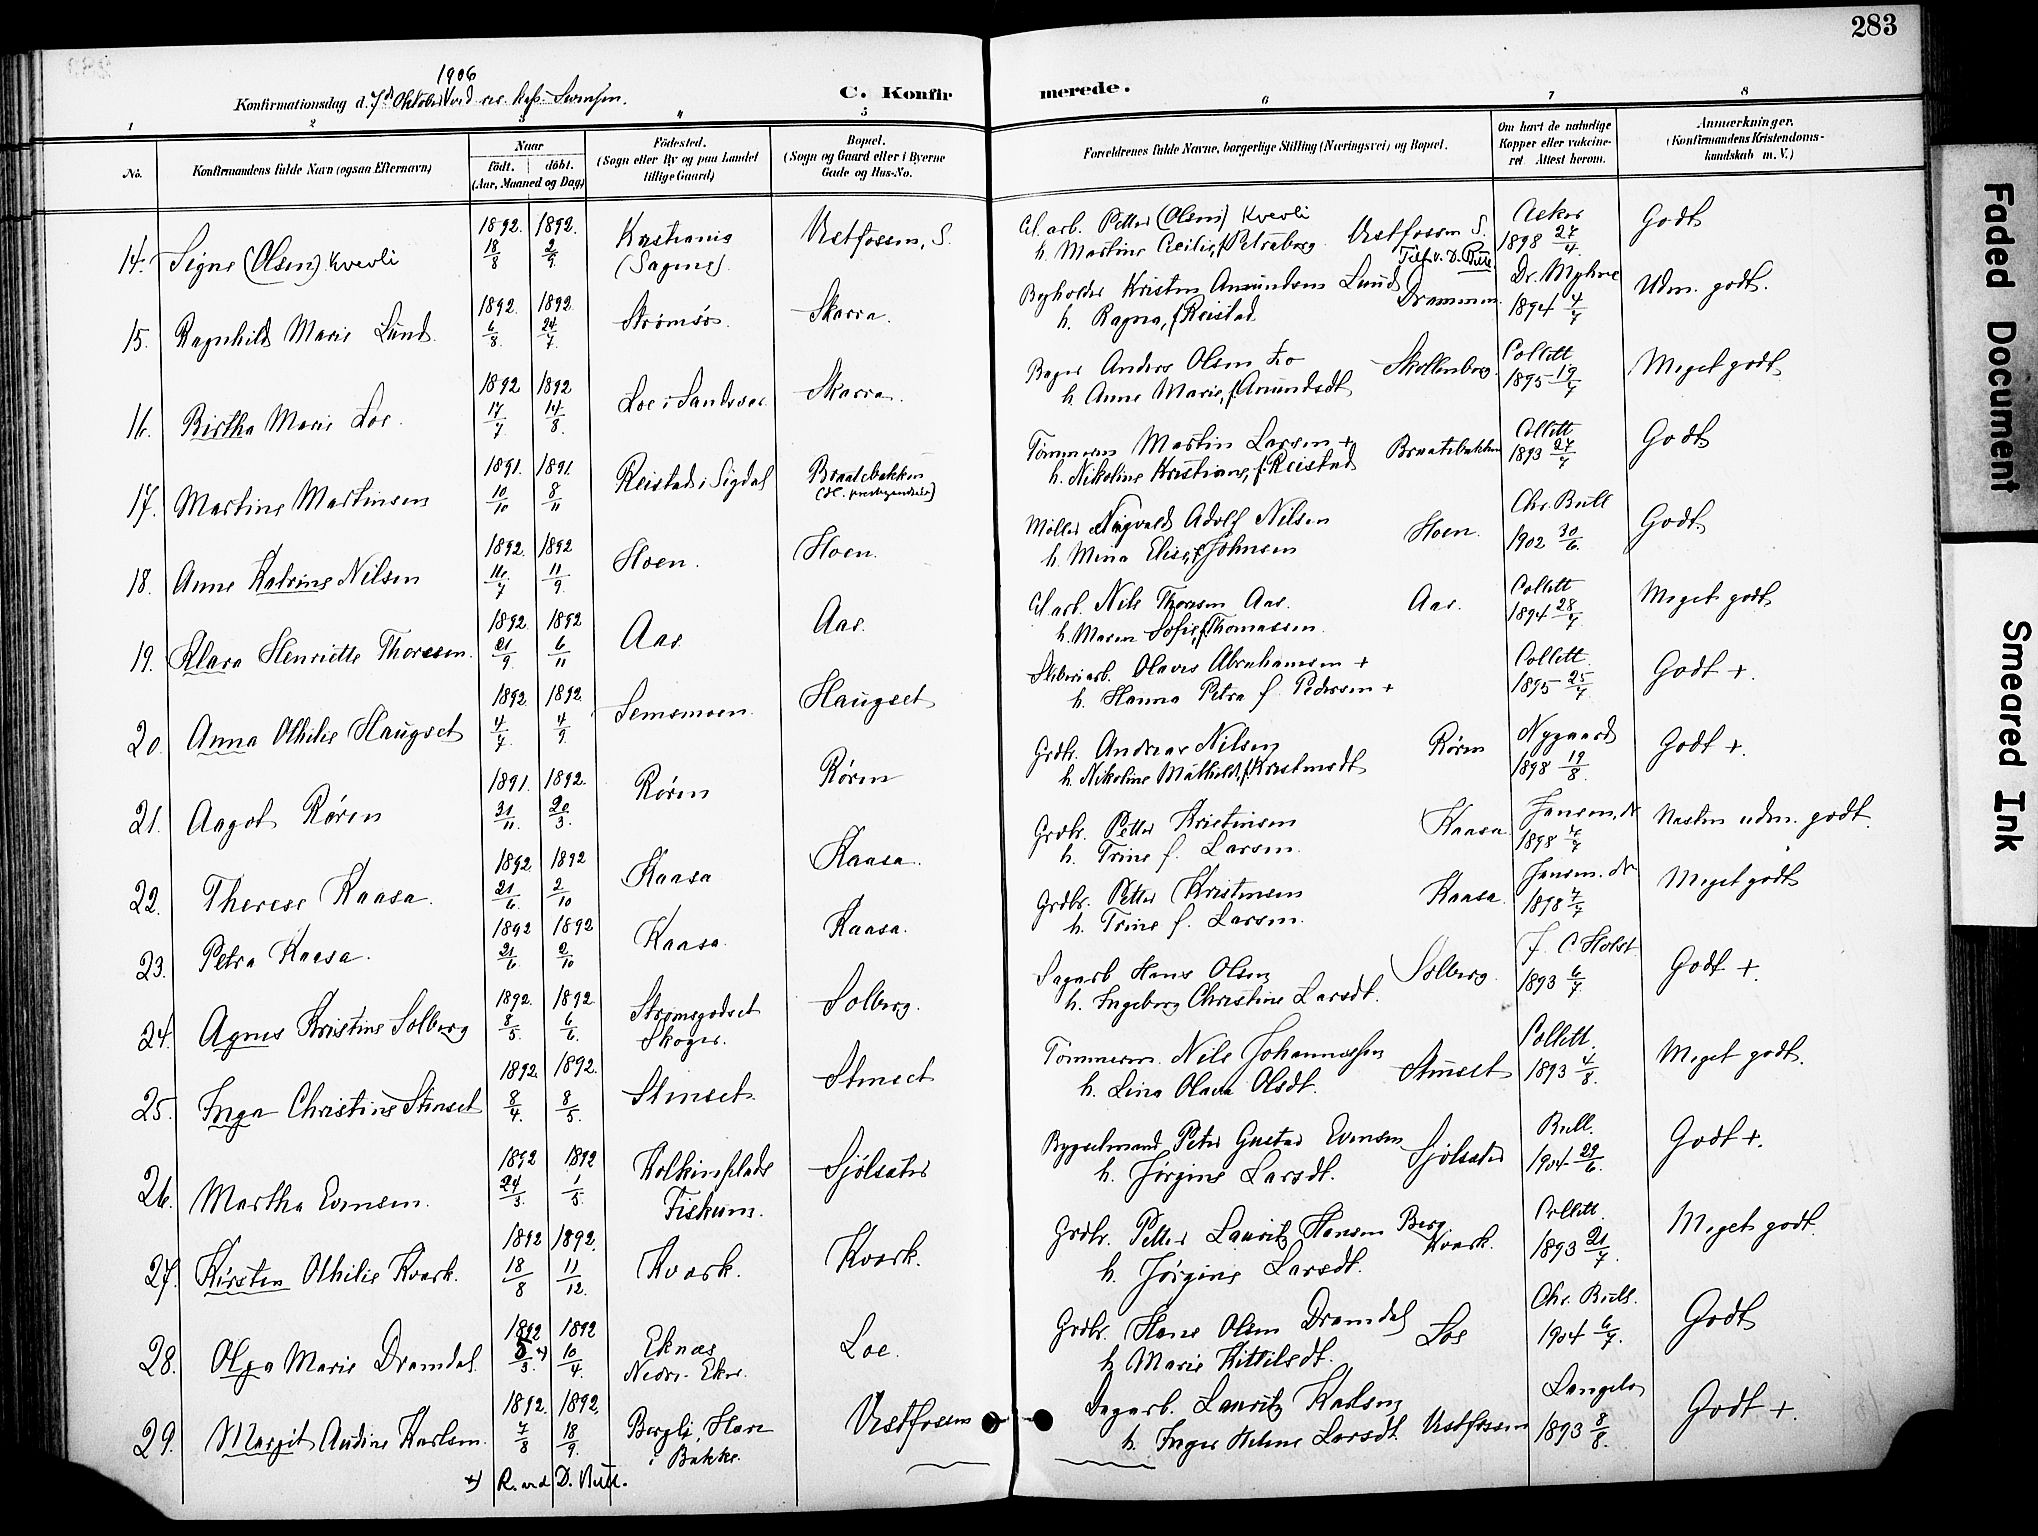 283
1906
Konfirmationsdag d. 7de Oktober ved res. kap. Svensen.
C. Konfirmerede.
1 2 3 4 5 6 7 8
No.
Konfirmandens fulde Navn (ogsaa Efternavn)
Naar
født. døbt.
(Aar, Maaned og Dag)
Fødested.
(Sogn eller By og paa Landet
tillige Gaard)
Bopæl.
(Sogn og Gaard eller i Byerne
Gade og Hus-No.
Forældrenes fulde Navne, borgerlige Stilling (Næringsvei) og Bopæl.
Om havt de naturlige
Kopper eller vaccine-
ret. Attest herom.
Anmærkninger.
(Konfirmandens Kristendoms-
kundskab m. V.)
14. Signe (Olsen) Kverli 1892 18/8 1892 2/9 Kristiania (Sagene) Vestfossen, S.
arb. Petter (Olsen) Kverli
h. Martine Cecilie, f. Petraborg Vestfossen S. Aker 1898 27/4 Godt
Tilf. v. D. Bull
15. Ragnhild Marie Lund 1892 6/8 1892 24/7 Strømsø Skarra.
Kristen Amundsen Lund
h. Ragna, f. Reistad Drammen Dr. Myhre 1894 4/7 Udm. godt.
16. Birtha Marie Loe 1892 17/7 1892 14/8 Loe i Sandsvær Skarra.
Bager Anders Olsen Lo
h. Anne Marie, f. Amundsdt Skollenborg Collett 1895 19/7 Meget godt
17. Martine Martinsen 1891 10/10 1891 8/11 Reistad i Sigdal Braatebakken
Tømmerm Martin Larsen +
h. Nikoline Kristiane, f. Reistad Braatebakken Collett 1893 27/7 Godt
18. Anne Katrine Nilsen 1892 16/7 1892 11/9 Hoen. Hoen.
Møller Sigvald Adolf Nilsen
h. Mina Elise, f. Johnsen Hoen. Chr. Bull 1902 30/6 Godt
19. Klara Henriette Thoresen 1892 21/9 1892 6/11 Aas Aas.
arb. Nils Thoresen Aas.
h. Maren Sofie, f. Thomassen Aas. Collett 1894 28/7 Meget godt
20. Anna Othilie Haugset 1892 4/7 1892 4/9 Semsmoen Haugset
Sliberiarb. Olaves Abrahamsen +
h. Hanna Petra f. Pedersen + Collett 1895 25/7 Godt +.
21. Aagot Røren 1891 31/11 1892 20/3 Røren Røren
Grdbr. Andreas Nilsen
h. Nikoline Mathilde, f. Kristensdt Røren Nygaard 1898 19/8 Godt +.
22. Therese Kaasa 1892 21/6 1892 2/10 Kaasa Kaasa.
Grdbr. Petter Kristensen
h. Trine f. Larsen Kaasa Jansen, dr 1898 7/7 Næsten udm. godt
23. Petra Kaasa. 1892 21/6 1892 2/10 Kaasa Kaasa.
Grdbr. Petter Kristensen
h. Trine f. Larsen Kaasa. Jansen. dr 1898 7/7 Meget godt
24. Agnes Kristine Solberg 1892 8/5 1892 6/6 Strømsgodset Skoger. Solberg.
Sagarb Hans Olsen
h. Ingeborg Christine Larsdt. Solberg. J. C Holst 1893 6/7 Godt +.
25. Inga Christine Stenset 1892 8/4 1892 8/5 Stenset Stenset
Tømmerm. Nils Johannessen
h. Lina Olava Olsdt. Stenset Collett 1893 4/8 Meget godt.
26. Martha Evensen. 1892 24/3 1892 1/5 Fiskum. Sjølsater
Bygselmand Peter Gustav Evensen
h. Jørgine Larsdt. Sjølsater Bull. 1904 29/6 Godt +.
27. Kirsten Othilie Kvark. 1892 18/8 1892 11/12 Kvark. Kvark.
Grdbr. Petter Lauritz Hansen Berg
h. Jørgine Larsdt. Kvark. Collett 1893 21/7 Meget godt.
28. Olga Marie Dramdal 1892 5/3 x) 1892 10/4 Eknæs Nedre-Eker. Loe.
Grdbr. Hans Olsen Dramdal
h. Marie Kittilsdt. Loe Chr. Bull. 1904 6/7 Godt
29. Margit Andine Karlsen. 1892 7/8 1892 18/9 Bergli, Hære i Bakke. Vestfossen
Dagarb. Lauritz Karlsen
h. Inger Helene Larsdt. Vestfossen Langelo 1893 8/8 Godt +.
x) R. ved D. Bull.
Faded Document
Smeared Ink